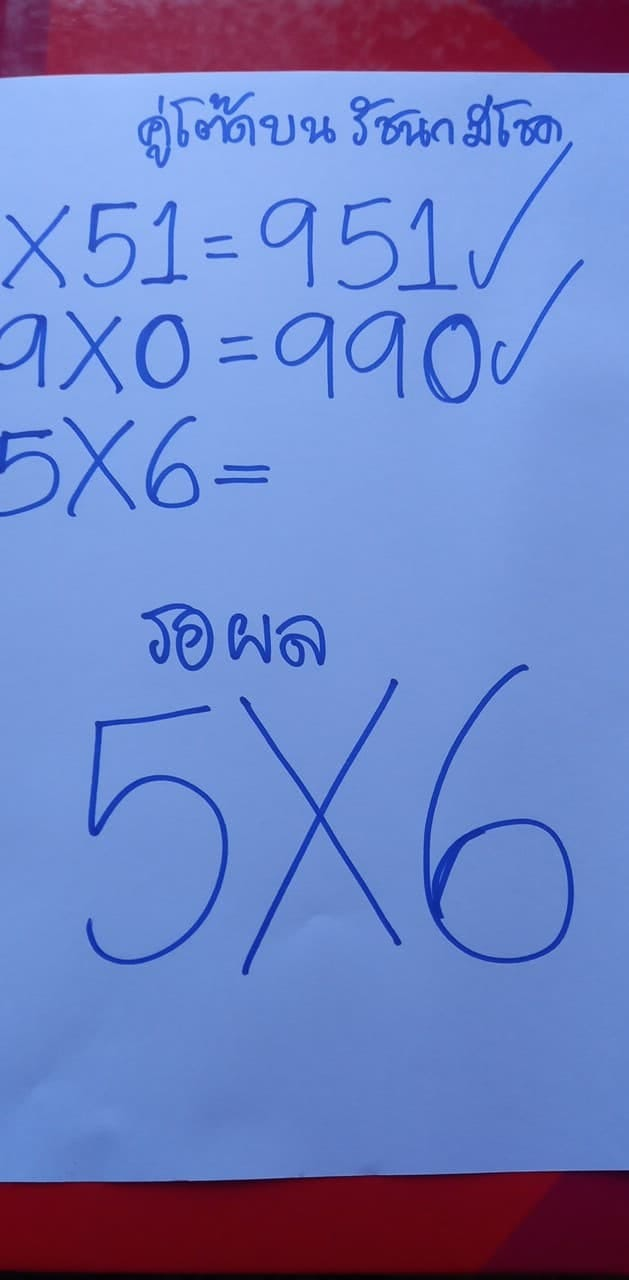 คู่โต๊ดบน รัชนก มีโชค
X51=951✓
9X0=990✓
5X6=
รอผล
5X6